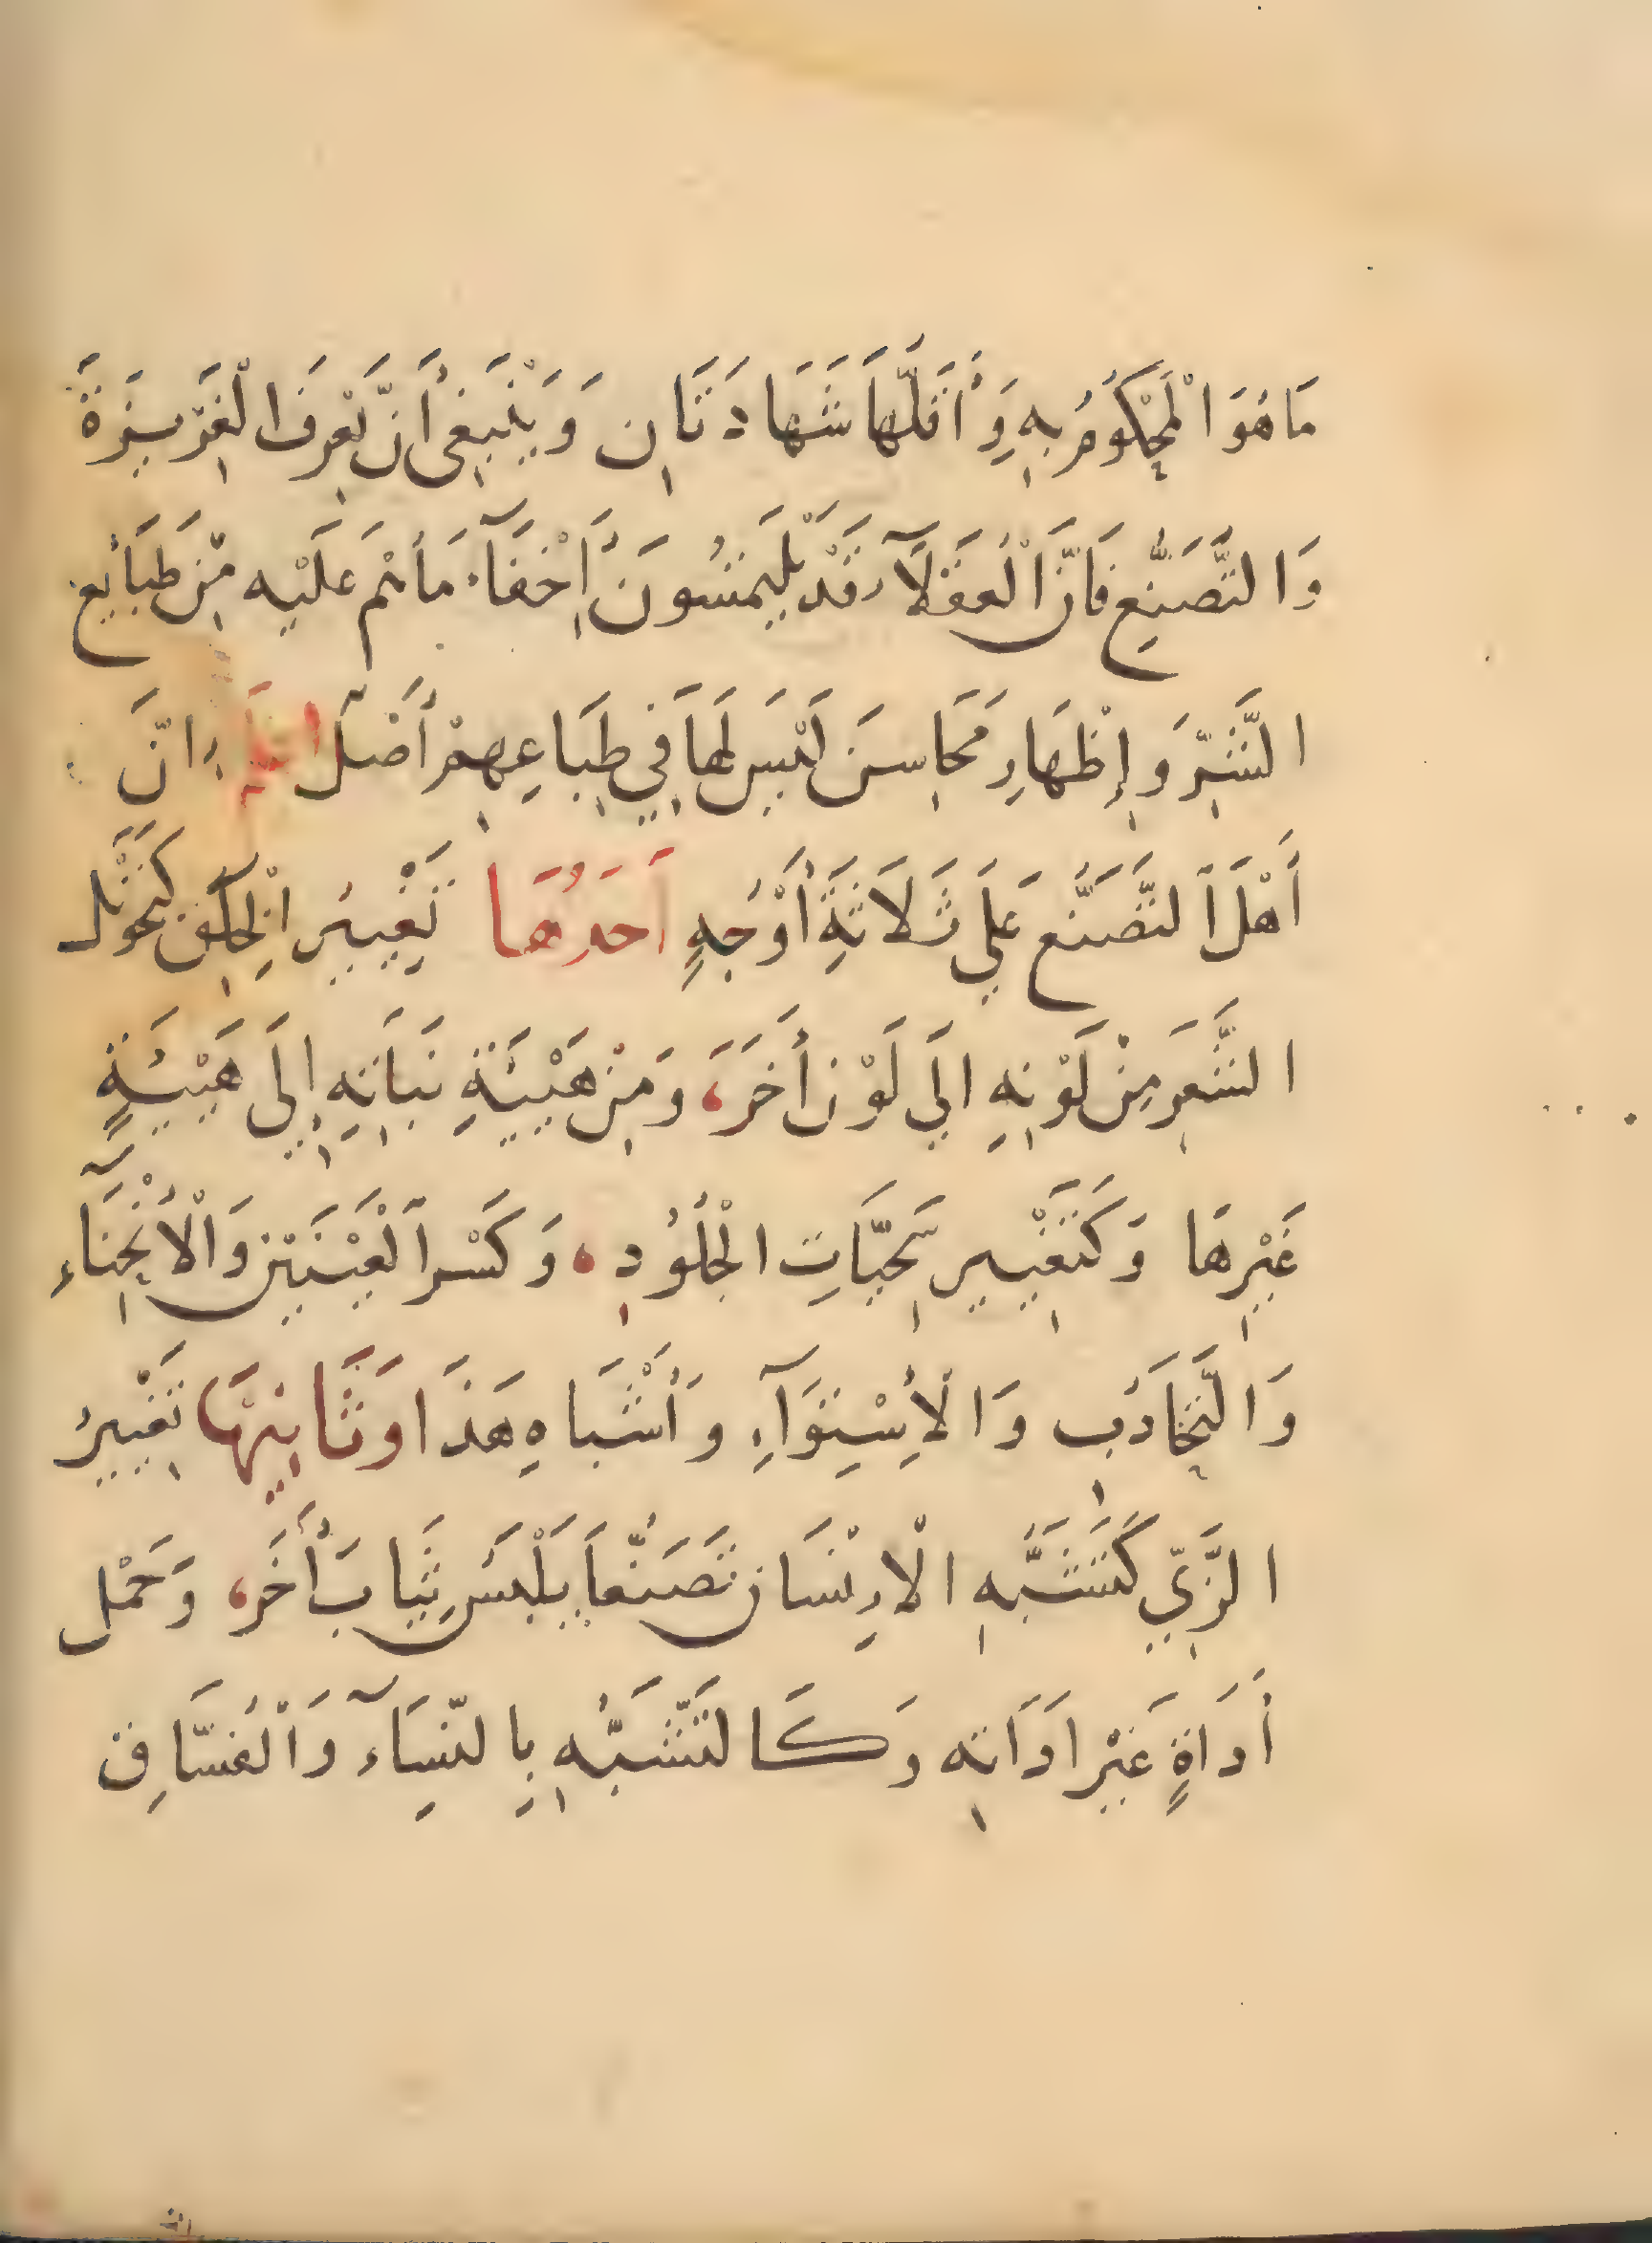 مَا هُوَ الْمَحْكُومُ بِهِ وَأَقَلُّهَا شَهَادَتَانِ وَيَنْبَغِي أَنْ تَعْرِفَ الْغَرِيزَةَ
وَالتَّصَنُّعِ فَانَّ الْعُقَلَآءَ قَدْ يَلْتَمِسُونَ إِخْفَآءَ مَا هُم عَلَيْهِ مِنْ طَبَائِعِ
الشَّرِّ وَإِظْهَارِ مَحَاسِنَ لَيْسَ لَهَا فِي طِبَاعِهِمْ أَصْلٌ اعلم انَّ
أَهْلَ التَّصَنُّعِ عَلَي ثَلَاثَةِ أَوْجُهٍ أَحَدُهَا تَغْيِيرُ الْخَلْقِ كَتَحْوِيلِ
الشَّعَرِ مِنْ لَوْنِهِ الَي لَوْنٍ أَخَرَ، وَمِنْ هَيْئَةِ نَبَاتِهِ إِلَى هَيْئَةٍ
غَيْرِهَا وَكَتَغْيِيرِ سَحِيَّاتِ الْجُلُودِ، وَكَسْرِ الْعَيْنَيْنِ وَالْأِنْحِنَآءِ
وَالتَّحَادُبِ وَالْأِسْتِوَآءِ وَأَشْبَاهِ هَذَا وَثَانِيهَا تَغْيِيرُ
الزِّيِّ كَتَشَبُّهِ الْاِنْسَانِ تَصَنُّعاً بِلُبْسِ ثِيَابِ أَخَرَ، وَحَمْلِ
أَدَاةٍ غَيْرِ ادَاتِهِ وَكَالتَّشَبُّهِ بِالنِّسَآءِ وَالْفُسَّاقِ